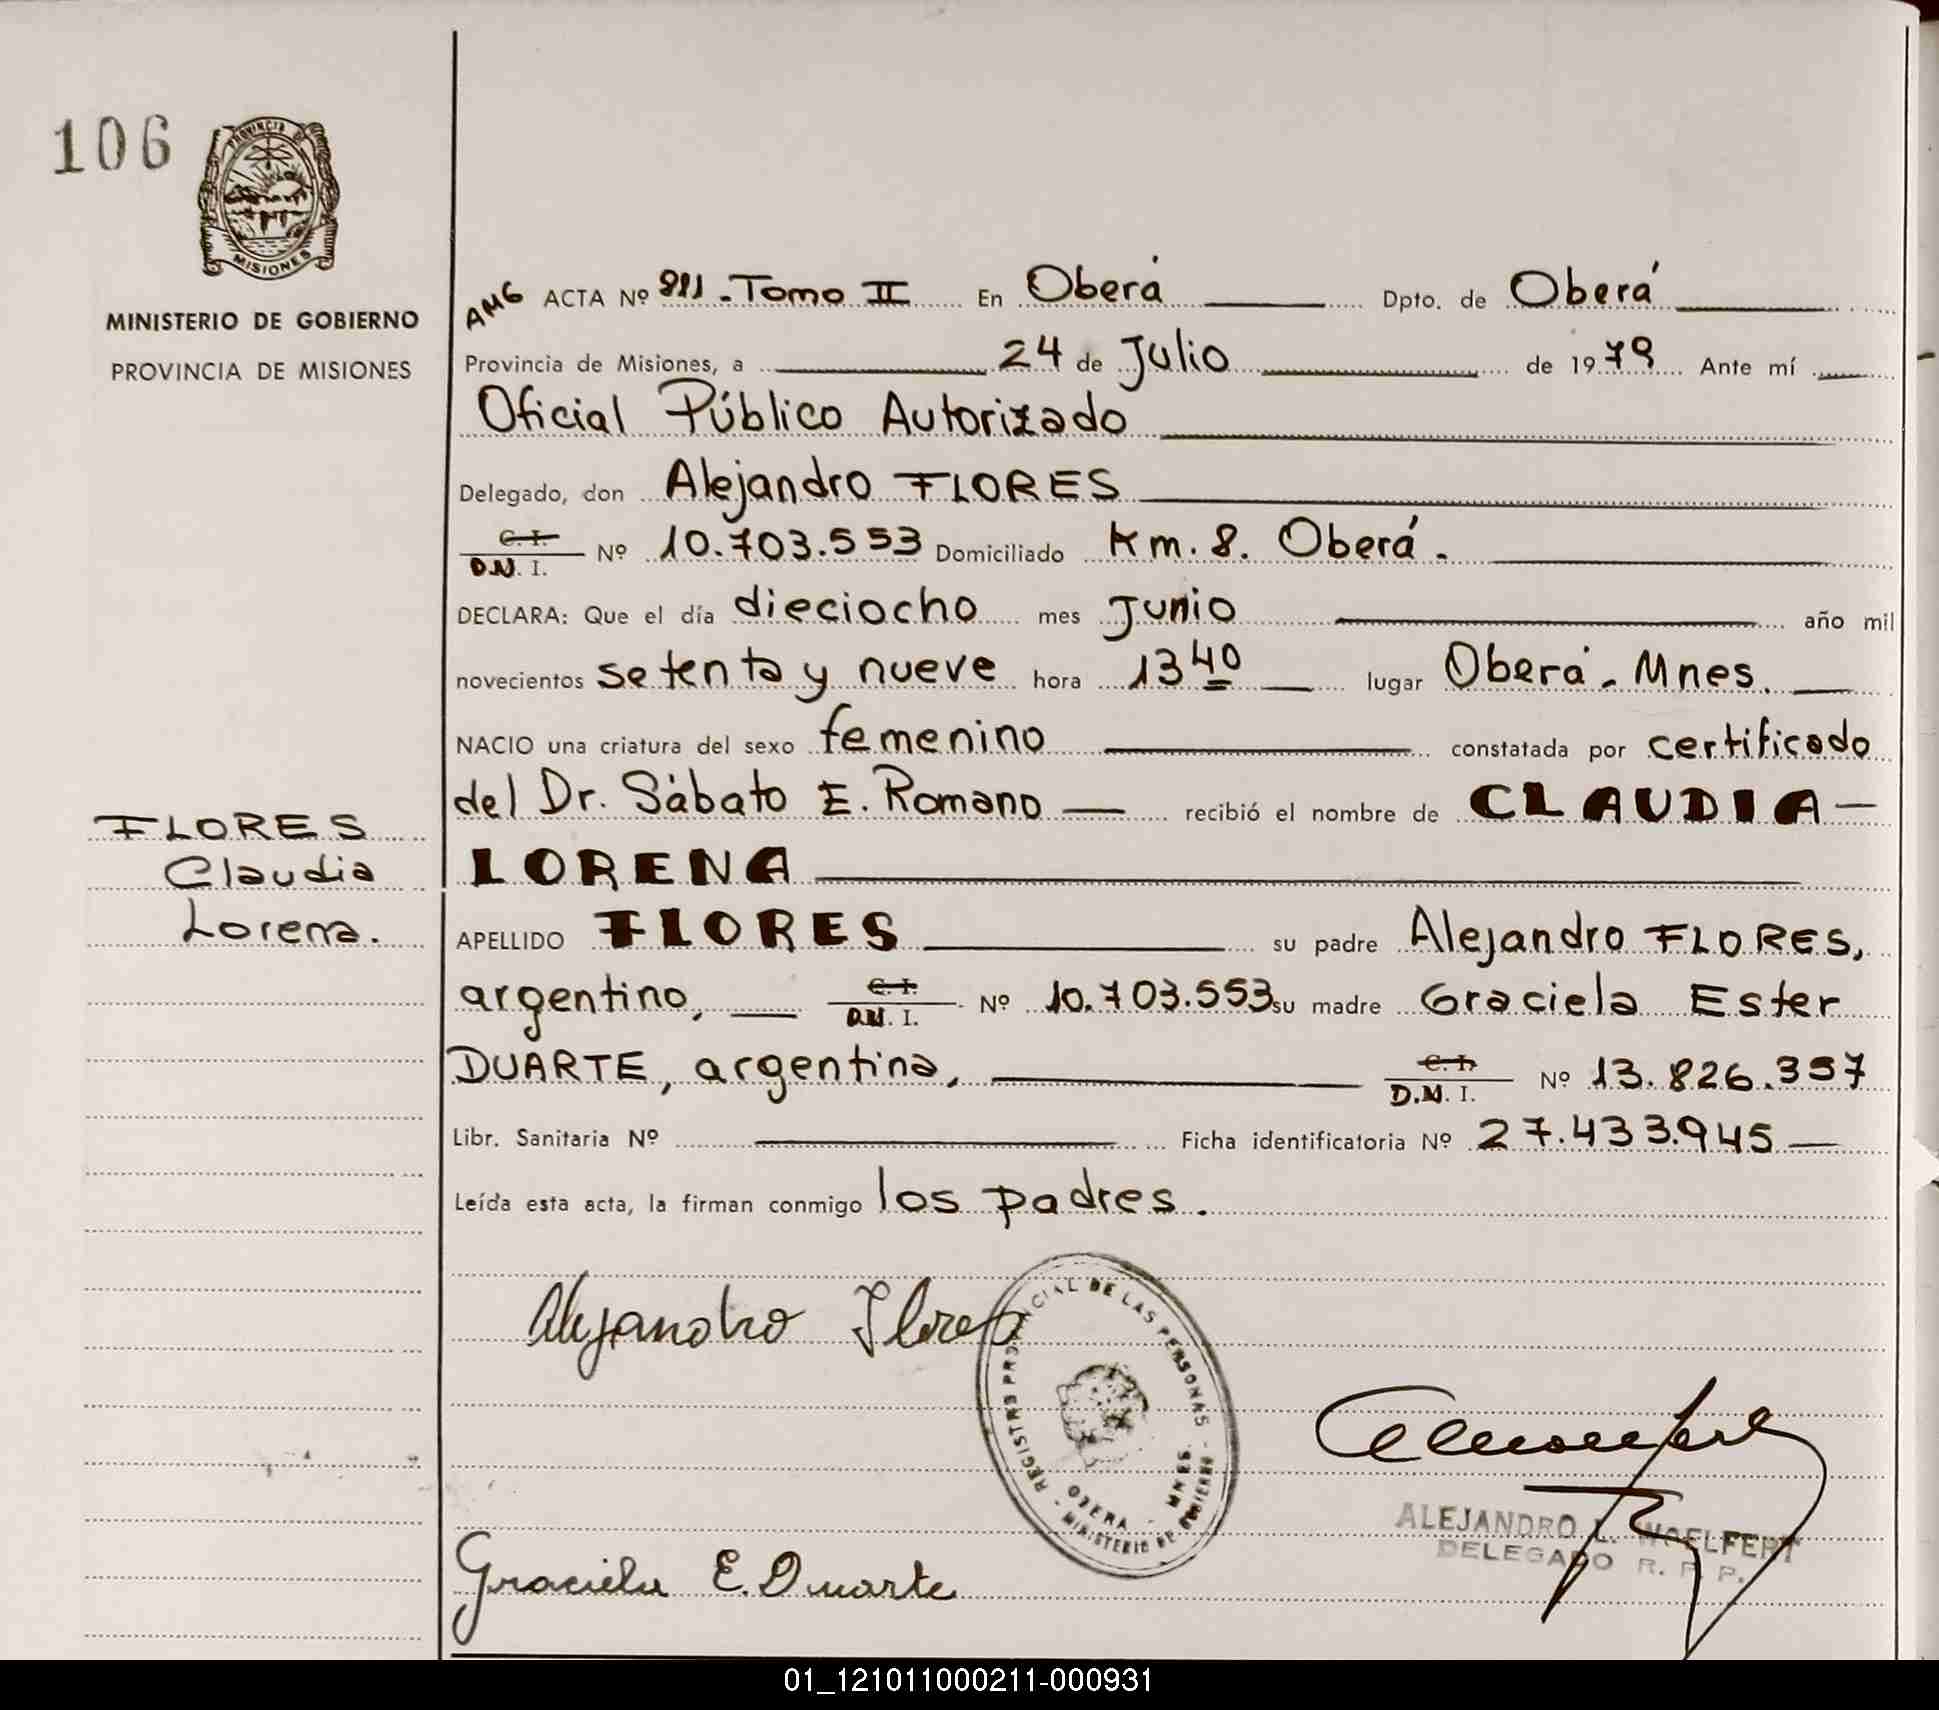 106
PROVINCIA DE
MISIONES
MINISTERIO DE GOBIERNO
PROVINCIA DE MISIONES
FLORES
Claudia
Lorena.
AMG ACTA Nº 911. Tomo II En Oberá Dpto. de Oberá
Provincia de Misiones, a 24 de Julio de 1979 Ante mí
Oficial Público Autorizado
Delegado, don Alejandro FLORES
C. I.
D.N. I. Nº 10.703.553 Domiciliado Km. 8. Oberá.
DECLARA: Que el día dieciocho mes Junio año mil
novecientos setenta y nueve hora 13 40 lugar Oberá. Mnes.
NACIO una criatura del sexo femenino constatada por certificado
del Dr. Sábato E. Romano recibió el nombre de CLAUDIA
LORENA
APELLIDO FLORES su padre Alejandro FLORES,
argentino, C. I.
D.N. I. Nº 10.703.553 su madre Graciela Ester
DUARTE, argentina, C. I.
D.N. I. Nº 13.826.357
Libr. Sanitaria Nº Ficha identificatoria Nº 27.433.945
Leída esta acta, la firman conmigo los padres.
Alejandro Flores
REGISTRO PROVINCIAL DE LAS PERSONAS
OBERA - MNES.
MINISTERIO DE GOBIERNO
ALEJANDRO L. WOELFERT
DELEGADO R. P. P.
Graciela E. Duarte
01_121011000211-000931